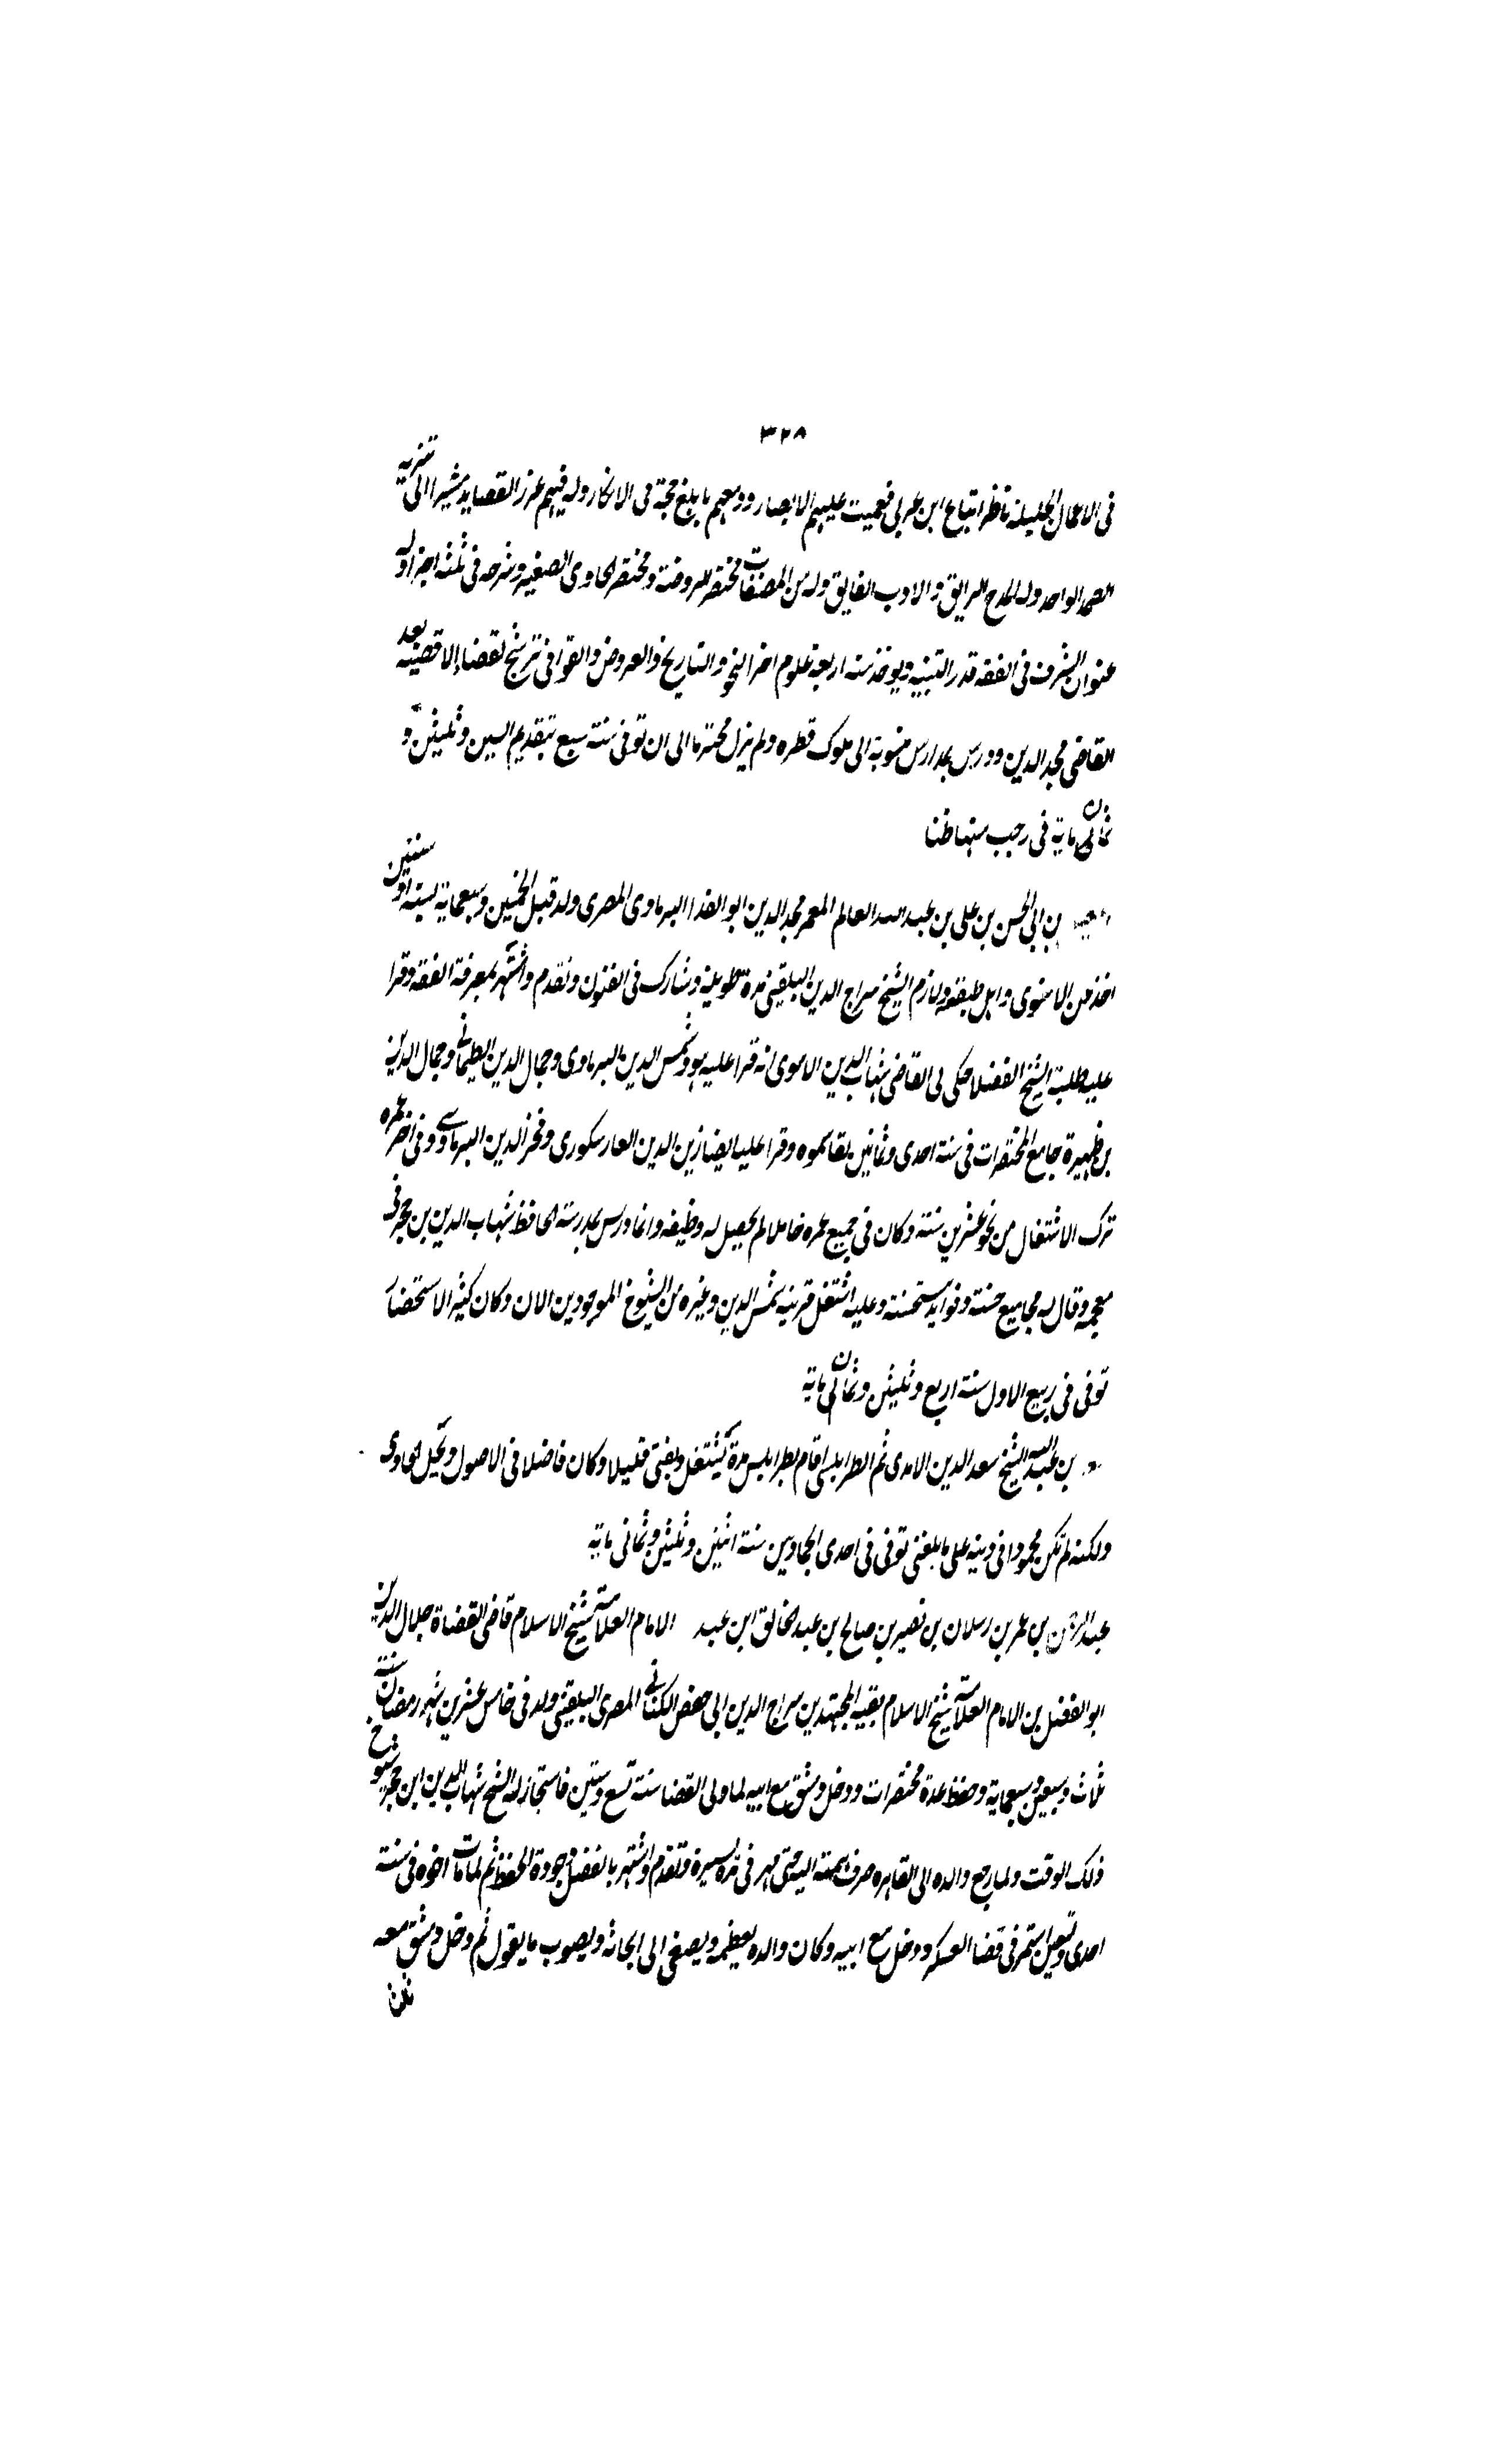 ٣٢٨
فى الاعمال الجليلة ناظر اتباع ابن عربى فعميت عليهم الابصار ودمغهم بابلغ حجة فى الانكار وله فيهم غرر القصايد مشيرا الى تنزيه
الصمد الواحد وله المدح الرايق والادب الفايق وله من المصنفات مختصر الروضة ومختصر الحاوى الصغير وشرحه فى ثلثة اجزا وله
عنوان الشرف فى الفقه قدر التنبيه ويوخذ منه اربعة علوم اخر النحو والتاريخ والعروض والقوافى ترشح لقضاء الاقضية بعد
القاضى مجد الدين ودرس بمدارس منسوبة الى ملوك قطره ولم يزل محترما الى ان توفى سنة سبع بتقديم السين وثلثين و
ثمان ماية فى رجب منها ظنا
بن ابى الحسن بن على بن عبد الله العالم المعمر مجد الدين ابو الفدا البرماوى المصرى ولد قبل الخمسين وسبعماية بسنة او سنتين
اخذ عن الاسنوى واهل طبقته ولازم الشيخ سراج الدين البلقينى مدة طويلة وشارك فى الفنون وتقدم واشتهر بمعرفة الفقه وقرا
عليه طلبة الشيخ الفضلا حكى لى القاضى شهاب الدين الاموى انه قرا عليه هو وشمس الدين البرماوى وجمال الدين الطيمانى وجمال الدين
بن ظهيرة جامع المختصرات فى سنة احدى وثمانين بقا كموه وقرا عليه ايضا زين الدين الفارسكورى وفخر الدين البرماوى وفى اخر عمره
ترك الاشتغال من نحو عشرين سنة وكان فى جميع عمره خاملا لم يحصل له وظيفه وانما درس بمدرسة الحافظ شهاب الدين بن حجر فى
معجمه وقال له مجاميع حسنة وفوايد مستحسنة وعليه اشتغل قريبه شمس الدين وغيره من الشيوخ الموجودين الان وكان كثير الاستحضار
توفى فى ربيع الاول سنة اربع وثلثين وثمان ماية
بن عبد الله الشيخ سعد الدين الامدى ثم الطرابلسى اقام بطرابلس مدة يشتغل ويفتى قليلا وكان فاضلا فى الاصول ويحل الحاوى
ولكنه لم يكن محمودا فى دينه على ما بلغنى توفى فى احدى الجمادين سنة اثنين وثلثين وثمانى ماية
عبد الرحمن بن عمر بن رسلان بن نصير بن صالح بن عبد الخالق ابن عبد الامام العلامة شيخ الاسلام قاضى القضاة جلال الدين
ابو الفضل بن الامام العلامة شيخ الاسلام بقية المجتهدين سراج الدين ابى حفص الكنانى المصرى البلقينى ولد فى خامس عشرين شهر رمضان سنة
ثلاث وسبعين وسبعماية وحفظ عدة مختصرات ودخل دمشق مع ابيه لما ولى القضا سنة تسع وستين فاستجاز له الشيخ شهاب الدين ابن حجى شيوخ
ذلك الوقت ولما رجع والده الى القاهره صرف همته اليه حتى مهر فى مدة يسيرة وتقدم واشتهر بالفضل وجودة الحفظ ثم لما مات اخوه فى سنة
احدى وتسعين استقر فى قضا العسكر ودخل مع ابيه وكان والده يعظمه ويصغى الى ابحاثه ويصوب ما يقول ثم دخل دمشق معه